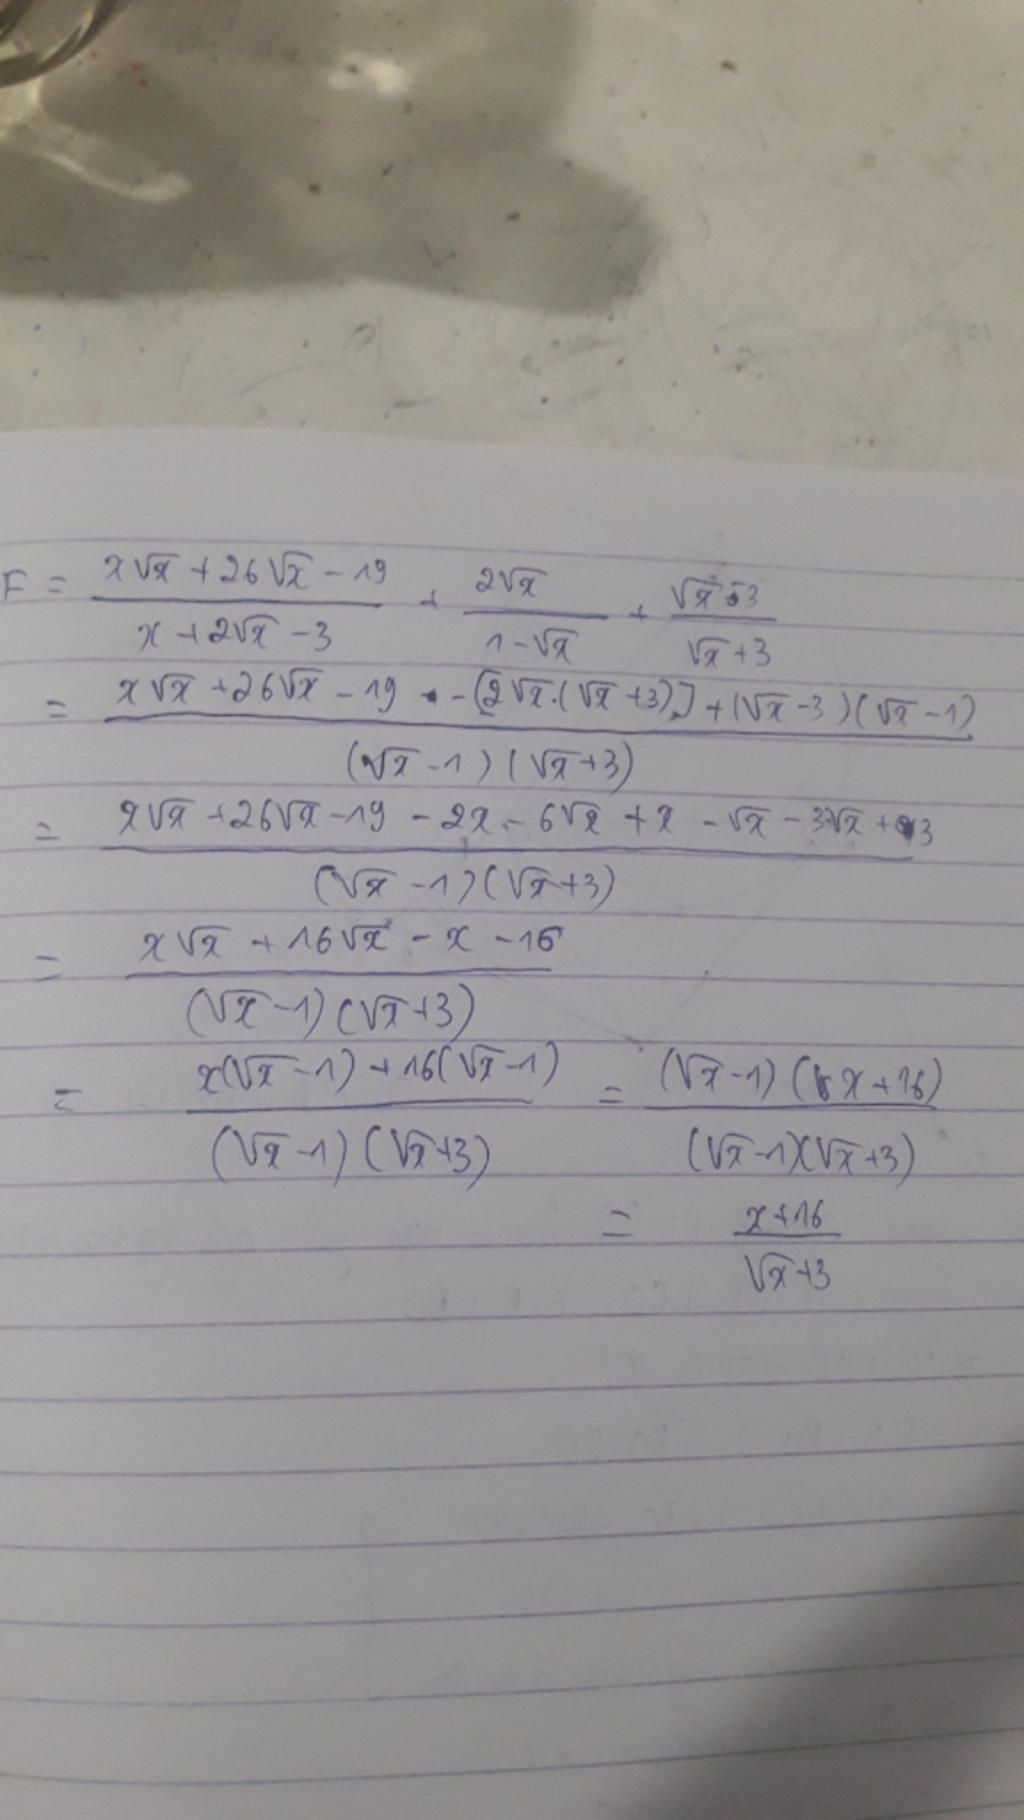 F = (x√x + 26√x - 19)/(x + 2√x - 3) + (2√x)/(1 - √x) + (√x - 3)/(√x + 3)
= (x√x + 26√x - 19 - [2√x.(√x + 3)] + (√x - 3)(√x - 1))/((√x - 1)(√x + 3))
= (x√x + 26√x - 19 - 2x - 6√x + x - √x - 3√x + 3)/((√x - 1)(√x + 3))
= (x√x + 16√x - x - 16)/((√x - 1)(√x + 3))
= (x(√x - 1) + 16(√x - 1))/((√x - 1)(√x + 3)) = ((√x - 1)(x + 16))/((√x - 1)(√x + 3))
= (x + 16)/(√x + 3)